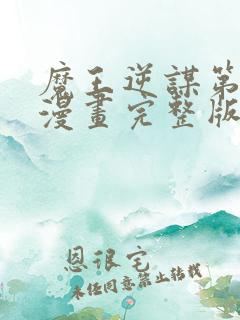 魔王逆謀第
漫畫完整版
恩很宅
未經同意禁止轉載